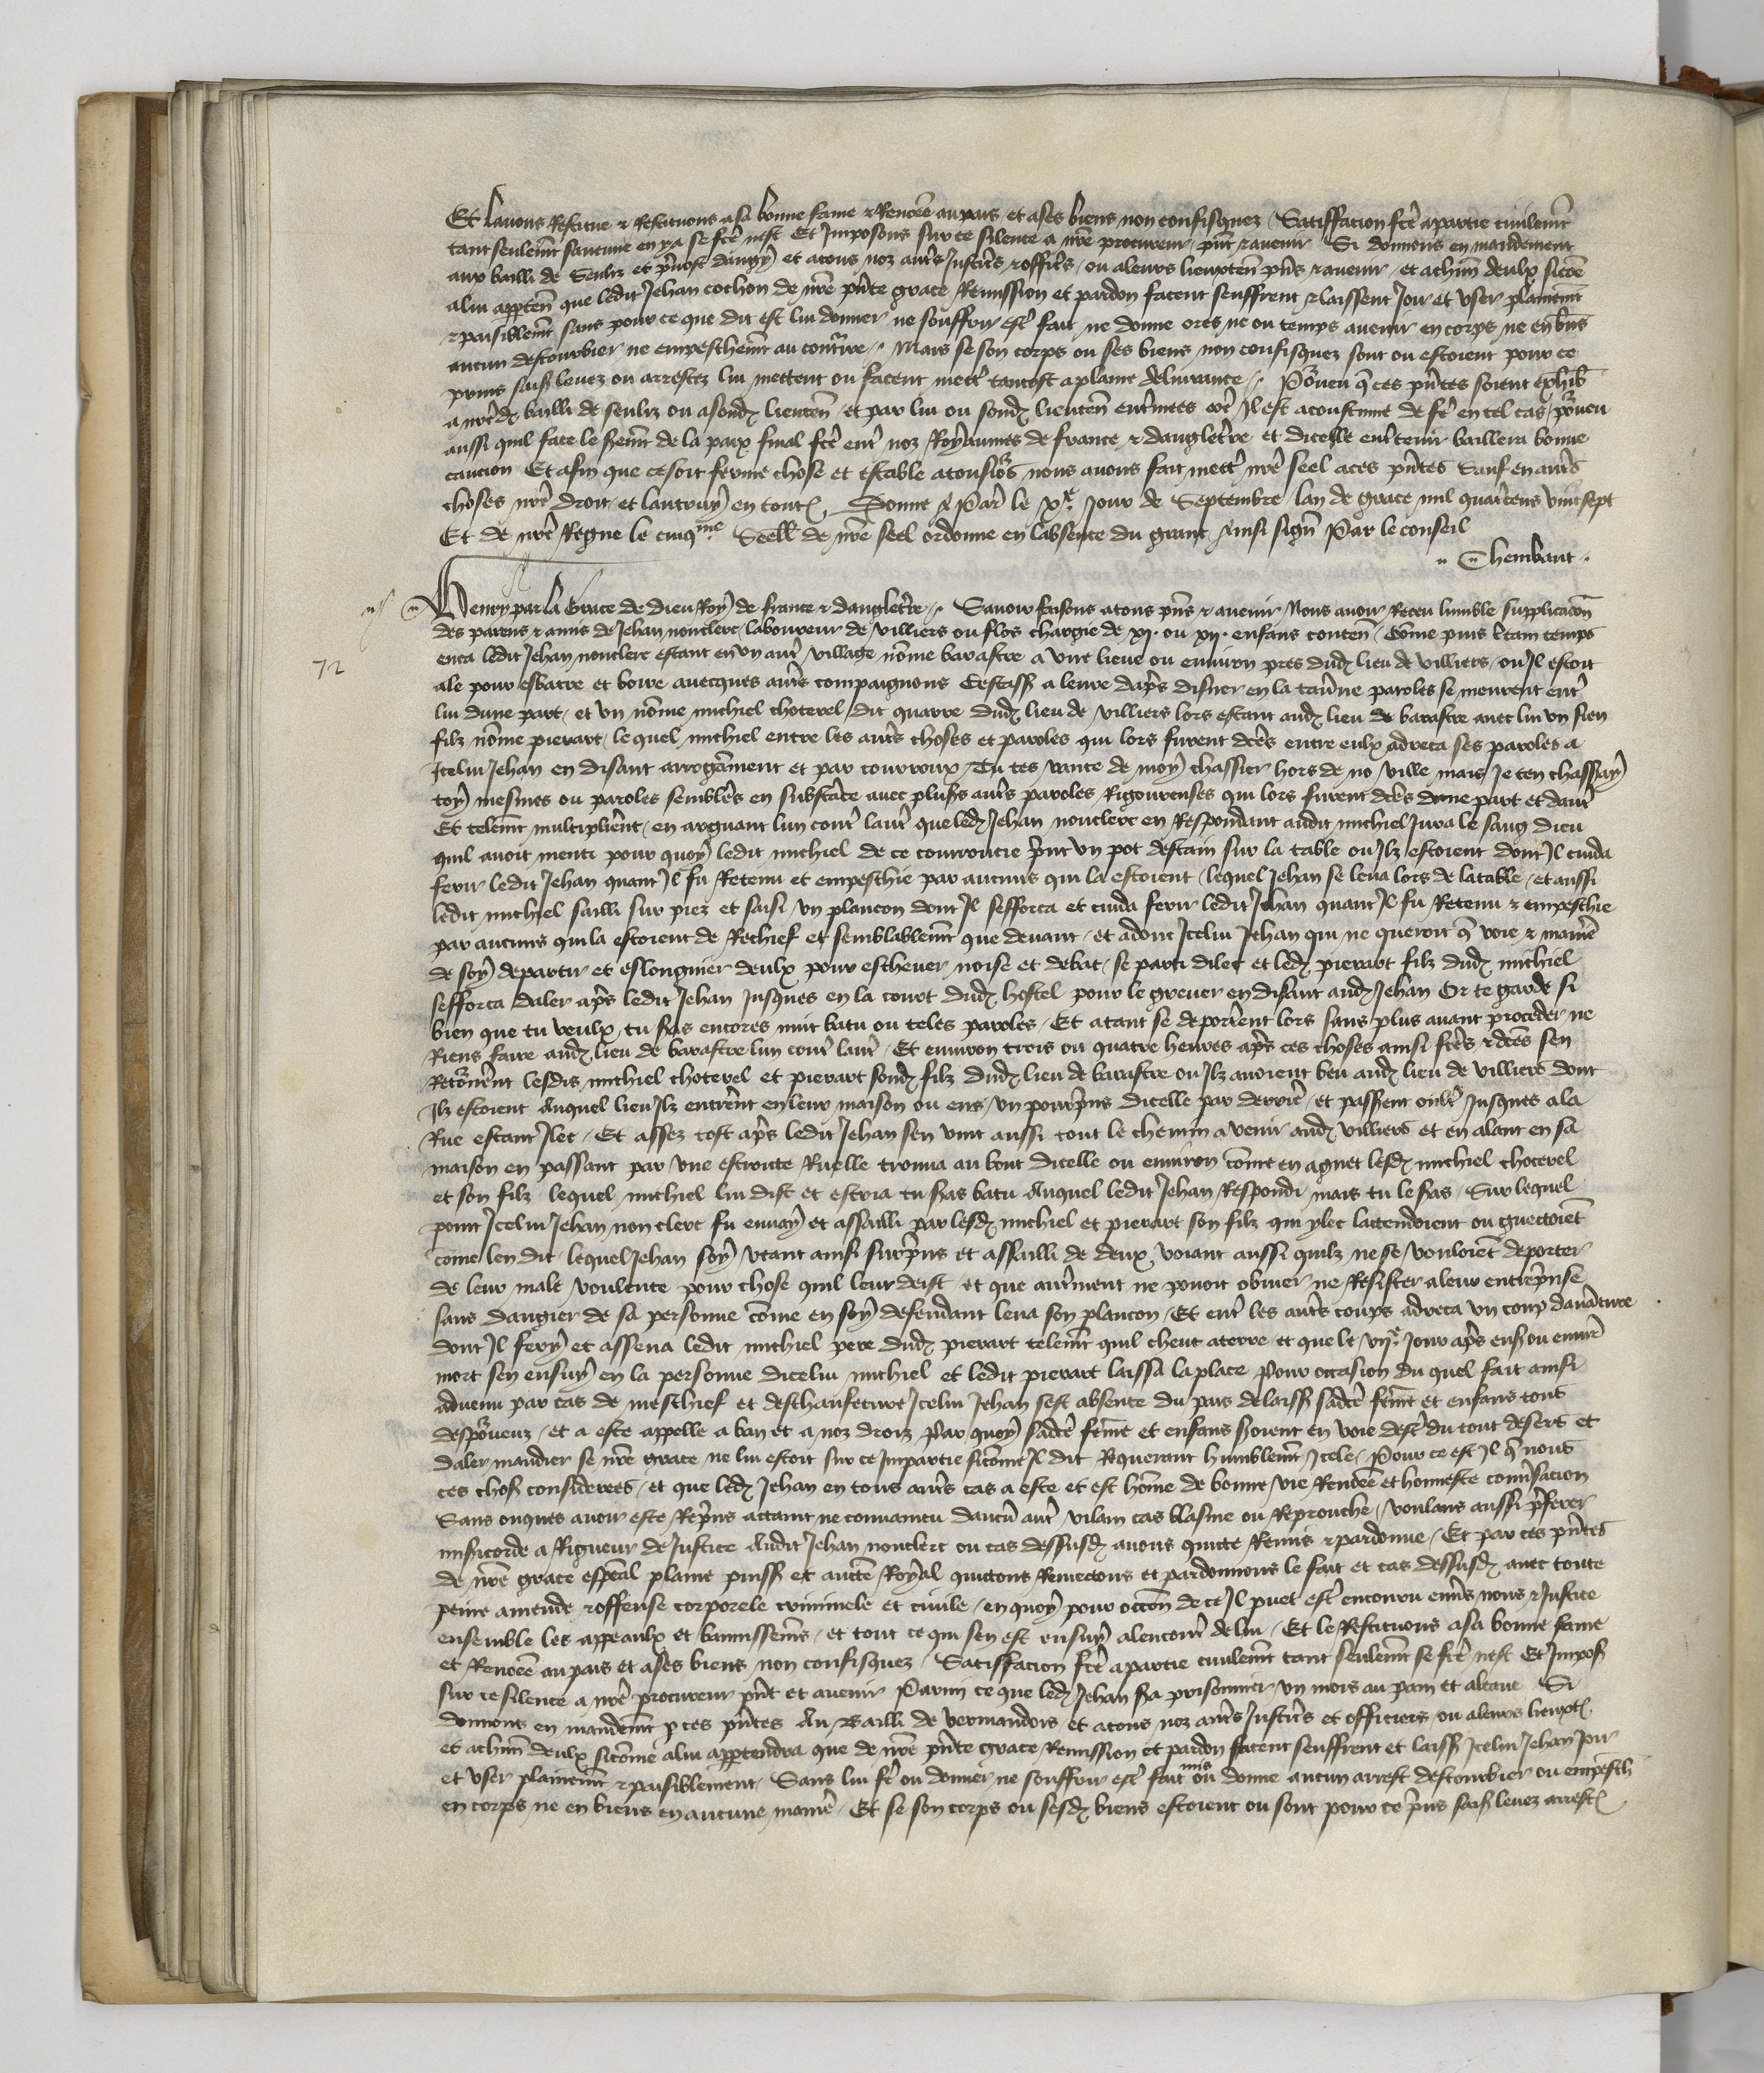 Et lavons Restitue & Restituons a sa bonne fame & Renoee au pais et a ses biens non confisquez / Satisfacion fcte a partie civilemt
tant seulemt saucune en y a se fcte nest Et Imposons sur ce silence a nre procureur pnt & avenir Si donnons en mandement
aux bailli de Senliz et prevost dangy et a tous noz autres Justiciers & officiers / ou a leurs lieuxten pns & avenir / et a chun deulx sicoe
a lui apparten que ledit Jehan cochon de nre pnte grace Remission et pardon facent seuffrent & laissent Joir et user plainemt
& paisiblemt sans pour ce que dit est lui donner ne souffrir estre fait ne donne ores ne ou temps avenir en corps ne en bns
aucun destourbier ne empeschemt au contraire / Mais se son corps ou ses biens non confisquez sont ou estoient pour ce
prins saisiz levez ou arrestez lui mettent ou facent mettre tantost a plaine delivrance / Pourveu que ces pntes soient exhib
a nredit bailli de senliz ou a sondit lieuten / et par lui ou sondit lieuten enterinees coe Il est acoustume de fe en tel cas / pourveu
aussi quil face le sermt de la paix final fcte entre noz Royaumes de france & dangleterre et dicelle entretenir baillera bonne
caucion Et afin que ce soit ferme chose et estable a tousiours nous avons fait mettre nre seel a ces pntes Sauf en autres
choses nre droit et lautruy en toutes Donne A Paris le Xe Jour de Septembre lan de grace mil quatrecens vint sept
Et de nre Regne le cinqme Seelle de nre seel ordonne en labsence du grant Ainsi signe Par le conseil
Thembaut
Henry par la Grace de dieu Roy de france & dangleterre / Savoir faisons a tous pns & avenir Nous avoir Receu humble supplicacon
des parens & amis de Jehan nonclerc laboureur de villiers ou flos chargie de xj. ou xij. enfans conten / Coe puis certain temps
72
enca ledit Jehan nonclerc estant en un autre village nome barastre a une lieue ou environ pres dudit lieu de villiers / ou Il estoit
ale pour esbatre et boire avecques autres compaignons Cestass a leure dapres disner en la taverne paroles se meurent entre
lui dune part / et un nome michiel choterel dit quarre dudit lieu de villiers lors estant audit lieu de barastre avec lui un sien
filz nome pierart / lequel michiel entre les autres choses et paroles qui lors furent dces entre eulx adreca ses paroles a
Icelui Jehan en disant arrogament et par courroux / Tu tes vante de moy chassier hors de no ville mais Je ten chassay
toy mesmes ou paroles sembles en substance avec pluss autres paroles Rigoureuses qui lors furent dces dune part et dautre
Et telemt multiplierent / en arguant lun contre lautre que ledit Jehan nonclerc en Respondant audit michiel Jura le sang dieu
quil avoit menti pour quoy ledit michiel de ce courroucie print un pot destain sur la table ou Ilz estoient dont Il cuida
ferir ledit Jehan quant Il fu Retenu et empeschie par aucuns qui la estoient / lequel Jehan se leva lors de la table / et aussi
ledit michiel sailli sur piez et saisi un plancon dont Il sefforca et cuida ferir ledit Jehan quant Il fu Retenu & empeschie
par aucuns qui la estoient de Rechief et semblablemt que devant / et adonc Icelui Jehan qui ne queroit que voie & maniere
de soy departir et eslongnier deulx pour eschever noise et debat / se parti dilec et ledit pierart filz dudit michiel
sefforca daler apres ledit Jehan Jusques en la court dudit hostel pour le grever en disant audit Jehan Or te garde si
bien que tu veulx / tu seras encores nuit batu ou teles paroles / Et atant se deporterent lors sans plus avant proceder ne
Riens faire audit lieu de barastre lun contre lautre / Et environ trois ou quatre heures apres ces choses ainsi fctes & dces sen
Retournerent lesdis michiel choterel et pierart sondit filz dudit lieu de barastre ou Ilz avoient beu audit lieu de villiers dont
Ilz estoient Auquel lieu Ilz entrerent en leur maison ou en un pourprins dicelle par derriere / et passerent oultre Jusques a la
Rue estant Ilec / Et assez tost apres ledit Jehan sen vint aussi tout le chemin a venir audit villiers et en alant en sa
maison en passant par une estroicte Ruelle trouva au bout dicelle ou environ come en aguet lesdit michiel choterel
et son filz / lequel michiel lui dist et escria tu seras batu Auquel ledit Jehan Respondi mais tu le seras / Sur lequel
point Icelui Jehan nonclerc fu envay et assailli par lesdit michiel et pierart son filz qui ylec lattendoient ou guectoiet
come len dit / lequel Jehan soy veant ainsi surprins et assailli de deux voiant aussi quilz ne se vouloiet deporter
de leur male voulente pour chose quil leur deist / et que autrement ne povoit obvier ne Resister a leur entreprinse
sans dangier de sa personne coe en soy defendant leva son plancon / Et entre les autres coups adreca un coup daventure
dont Il fery et assena ledit michiel pere dudit pierart telemt quil cheut a terre et que le vije Jour apres ens ou enuir
mort sen ensuy en la personne dicelui michiel et ledit pierart laissa la place Pour occasion du quel fait ainsi
advenu par cas de meschief et deschaufeture Icelui Jehan sest absente du pais delaiss sadcte feme et enfans tous
despourveuz / et a este appelle a ban et a noz droiz Par quoy sadcte feme et enfans soient en voie destre du tout desers et
daler mandier se nre grace ne lui estoit sur ce Impartie sicome Il dit Requerant humblemt Icele / Pour ce est Il que nous
ces chos considerees / et que ledit Jehan en tous autres cas a este et est home de bonne vie Renoee et honneste conversacion
Sans onques avoir este Reprins attaint ne convaincu daucun autre vilain cas blasme ou Reprouche / voulans aussi preferer
misericorde a Rigueur de Justice Audit Jehan nonclerc ou cas dessusdit avons quicte Remis & pardonne / Et par ces pntes
de nre grace espeal plaine puiss et aucte Royal quictons Remectons et pardonnons le fait et cas dessusdit avec toute
peine amende & offense corporele criminele et civile / en quoy pour occon de ce Il puet estre encouru envers nous & Justice
ensemble les appeaulx et bannissemes / et tout ce qui sen est ensuy alencontre de lui / Et le Restituons a sa bonne fame
et Renoee au pais et a ses biens non confisquez / Satisfacion fcte a partie civilemt tant seulemt se fcte nest Et Impos
sur ce silence a nre procureur pnt et avenir Parmi ce que ledit Jehan sera prisonnier un mois au pain et a leaue Si
donnons en mandemt p ces pntes Au Bailli de vermandois et a tous noz autres Justiciers et officiers / ou a leurs lieuxt
et a chun deulx sicome a lui appartendra que de nre pnte grace Remission et pardon facent seuffrent et laiss Icelui Jehan Joir
et user plainemt & paisiblement / Sans lui fe ou donner ne souffrir estre fait mis ou donne aucun arrest destourbier ou empesch
en corps ne en biens en aucune maniere / Et se son corps ou sesdit biens estoient ou sont pour ce prins saisiz levez arrest